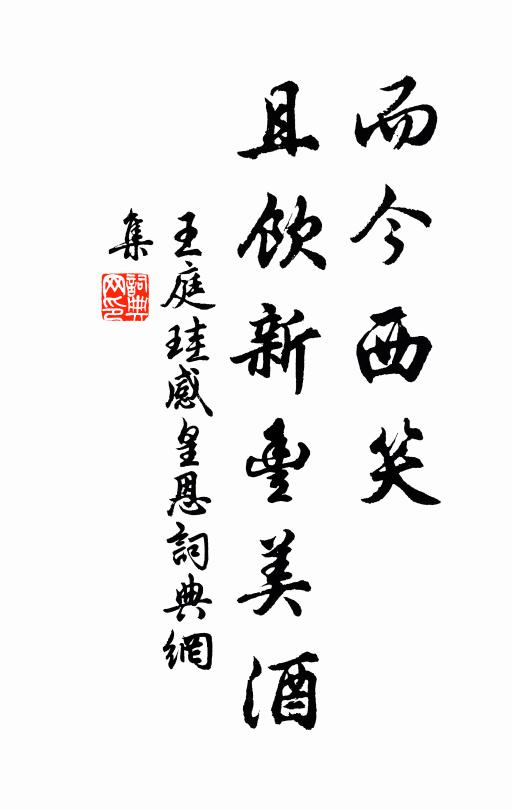 而今西笑
且飲新豐美酒
王庭珪感皇恩詞典網
集
詞典
网印